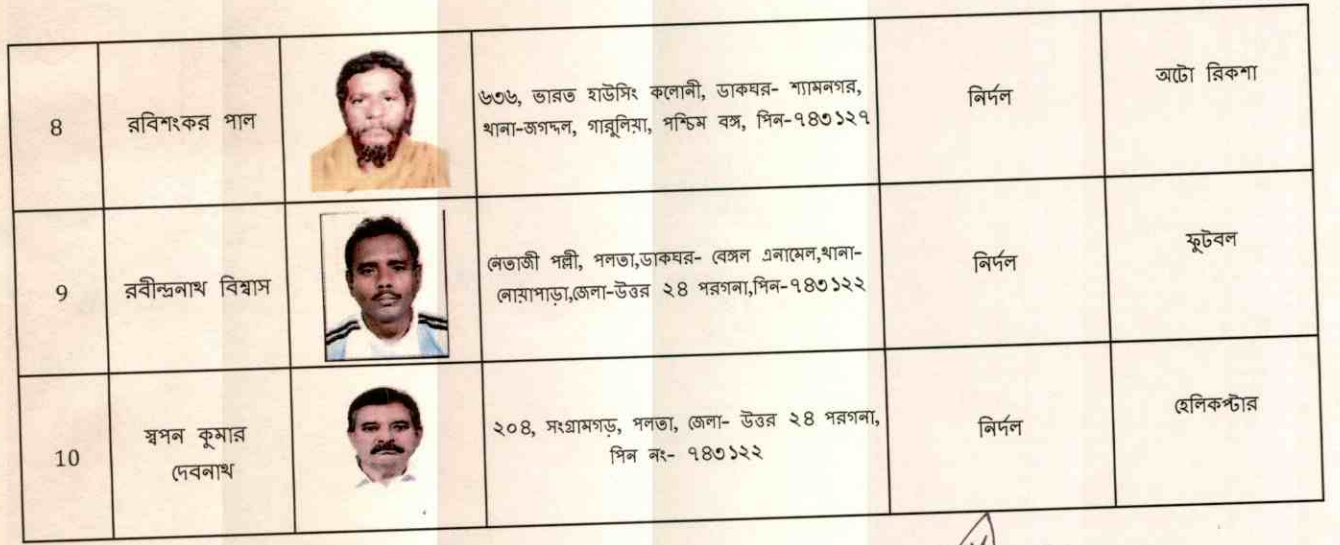 8
রবিশংকর পাল
৬৩৬, ভারত হাউসিং কলোনী, ডাকঘর- শ্যামনগর,
থানা-জগদ্দল, গারুলিয়া, পশ্চিম বঙ্গ, পিন-৭৪৩১২৭
নির্দল
অটো রিকশা
9
রবীন্দ্রনাথ বিশ্বাস
নেতাজী পল্লী, পলতা,ডাকঘর- বেঙ্গল এনামেল,থানা-
নোয়াপাড়া,জেলা-উত্তর ২৪ পরগনা,পিন-৭৪৩১২২
নির্দল
ফুটবল
10
স্বপন কুমার
দেবনাথ
২০৪, সংগ্রামগড়, পলতা, জেলা- উত্তর ২৪ পরগনা,
পিন নং- ৭৪৩১২২
নির্দল
হেলিকপ্টার